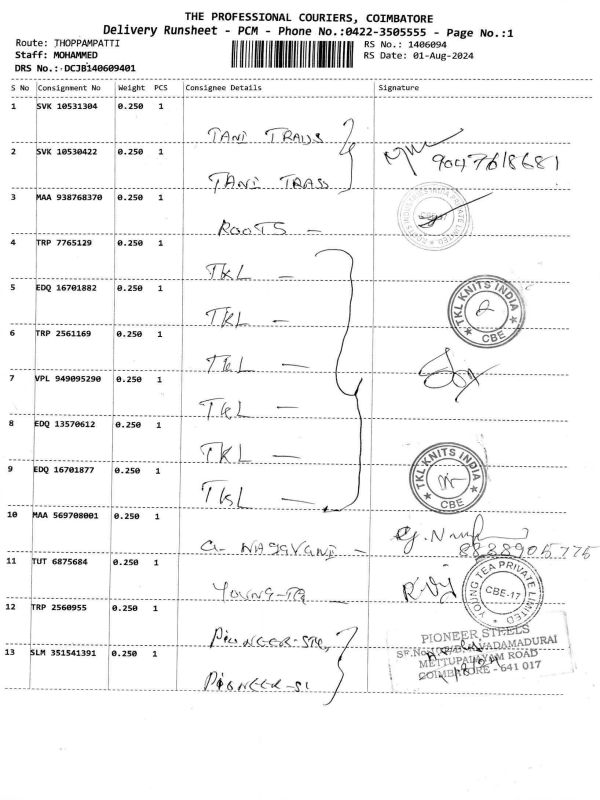 THE PROFESSIONAL COURIERS, COIMBATORE
Delivery Runsheet - PCM - Phone No.:0422-3505555 - Page No.:1
Route: THOPPAMPATTI
RS No.: 1406094
Staff: MOHAMMED
RS Date: 01-Aug-2024
DRS No.: DCJB140609401
S No Consignment No Weight PCS Consignee Details Signature
1 SVK 10531304 0.250 1
TANI TRAUS
2 SVK 10530422 0.250 1
9047618681
TANI TRASS
3 MAA 938768370 0.250 1
ROOTS —
4 TRP 7765129 0.250 1
TKL —
5 EDQ 16701882 0.250 1
TKL KNITS INDIA
2
CBE
TKL —
6 TRP 2561169 0.250 1
TKL —
7 VPL 949095290 0.250 1
TKL —
8 EDQ 13570612 0.250 1
TKL —
9 EDQ 16701877 0.250 1
TKL KNITS INDIA
CBE
TKL —
10 MAA 569708001 0.250 1
G. NAGAVANI —
8888905775
11 TUT 6875684 0.250 1
YOUNG TEA PRIVATE LIMITED
CBE-17
YOUNG-TEA —
12 TRP 2560955 0.250 1
PIONEER-STE,
PIONEER STEELS
13 SLM 351541391 0.250 1
METTUPALAYAM ROAD
COIMBATORE - 641 017
PIONEER-SI